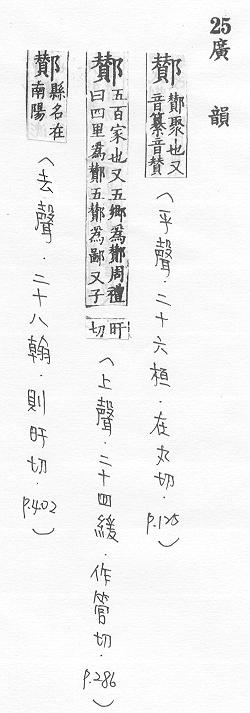 25廣韻
酇 酇聚也又音纂音賛
(平聲.二十六桓.在丸切.p.125)
酇 五百家也又五鄉爲酇周禮曰四里爲酇五酇爲鄙又子旰切
(上聲.二十四緩.作管切.p.286)
酇 縣名在南陽
(去聲.二十八翰.則旰切.p.402)